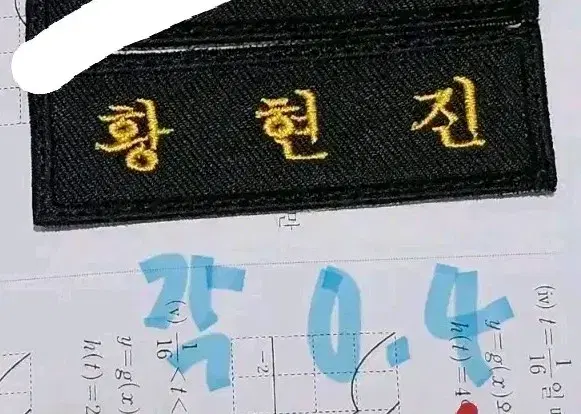 황 현 진
각 0.4
만
(iv) t = 1/16 일
y=g(x)
h(t)=4
(v) 1/16 < t <
y=g(x)
h(t)=2
-2